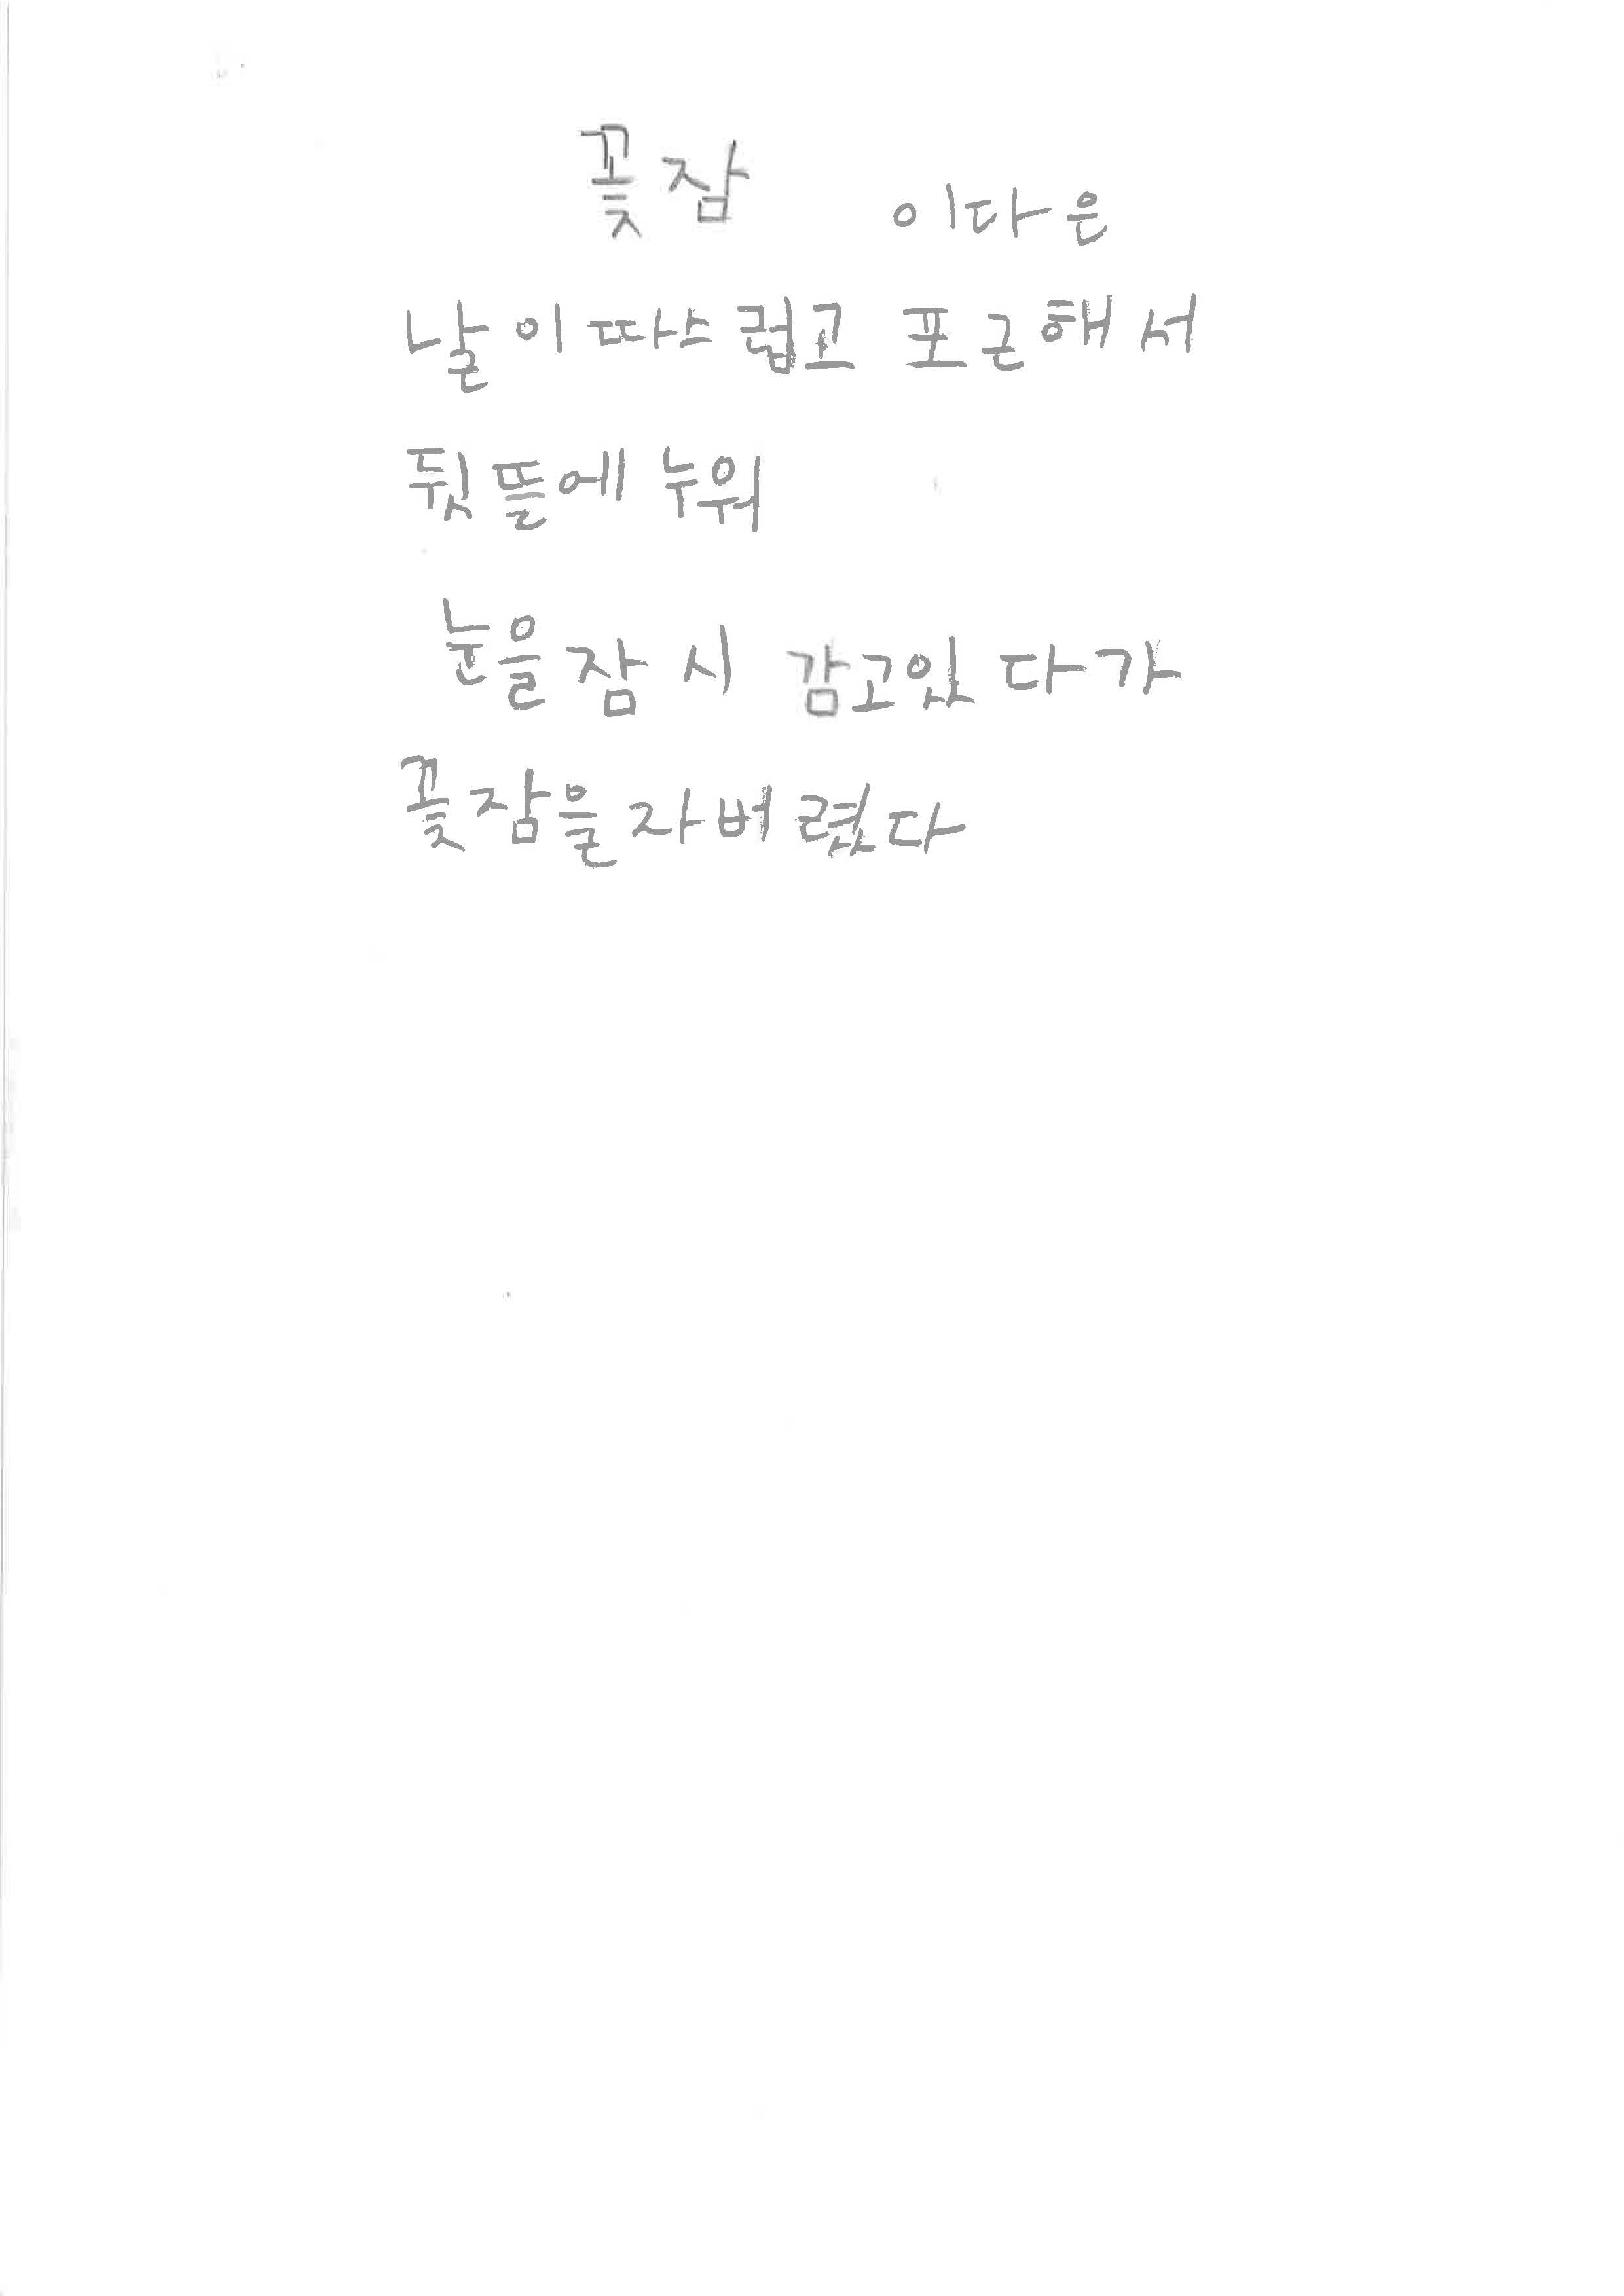 꽃잠 이다은
날이 따스럽고 포근해서
뒷뜰에 누워
눈을 잠시 감고있다가
꽃잠을 자버렸다